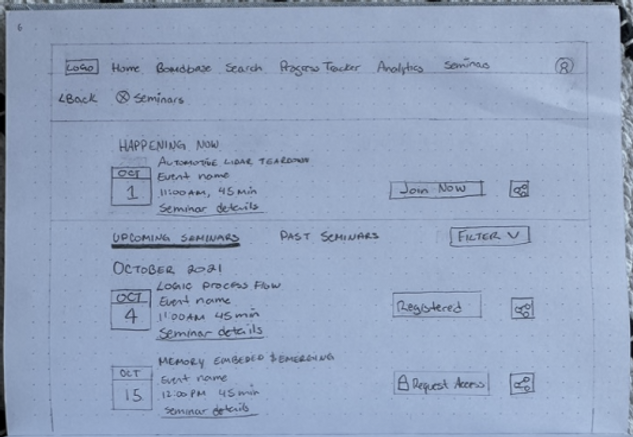 6
LOGO Home Bomdbase Search Progress Tracker Analytics Seminas
<Back Seminars
HAPPENING NOW
AUTOMOTIVE LIDAR TEARDOWN
OCT Event name
1 11:00 AM, 45 min Join Now
Seminar details
UPCOMING SEMINARS PAST SEMINARS FILTER V
OCTOBER 2021
LOGIC PROCESS FLOW
OCT Event name
4 11:00 AM 45 min Registered
Seminar details
MEMORY EMBEDED & EMERGING
OCT Event name
15 12:00 PM 45 min Request Access
Seminar details